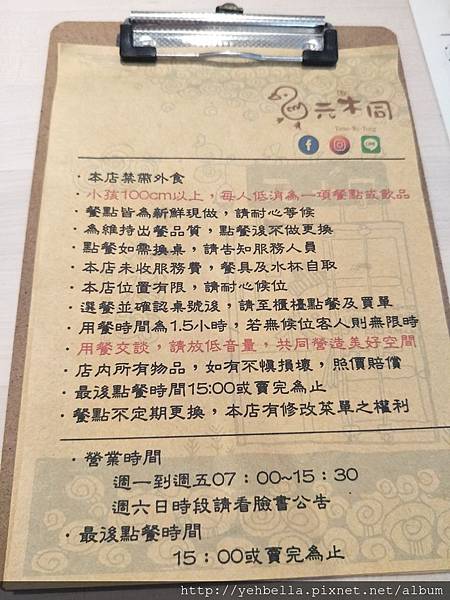 元木同
Yuan-Mu-Tong
・本店禁帶外食
・小孩100cm以上，每人低消為一項餐點或飲品
・餐點皆為新鮮現做，請耐心等候
・為維持出餐品質，點餐後不做更換
・點餐如需換桌，請告知服務人員
・本店未收服務費，餐具及水杯自取
・本店位置有限，請耐心候位
・選餐並確認桌號後，請至櫃檯點餐及買單
・用餐時間為1.5小時，若無候位客人則無限時
・用餐交談，請放低音量，共同營造美好空間
・店內所有物品，如有不慎損壞，照價賠償
・最後點餐時間15:00或賣完為止
・餐點不定期更換，本店有修改菜單之權利
・營業時間
週一到週五07：00~15：30
週六日時段請看臉書公告
・最後點餐時間
15：00或賣完為止
http://yehbella.pixnet.net/album